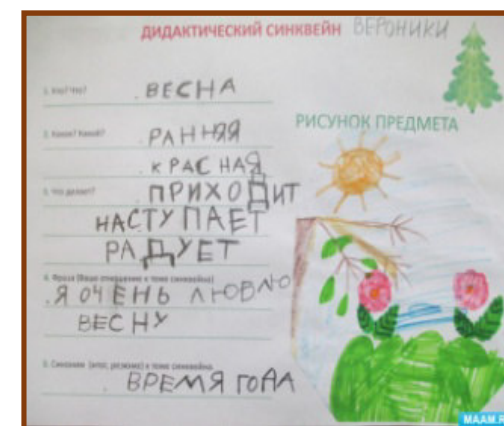 ДИДАКТИЧЕСКИЙ СИНКВЕЙН ВЕРОНИКИ
1. Кто? Что? ВЕСНА
РИСУНОК ПРЕДМЕТА
2. Какое? Какой? РАННЯЯ
КРАСНАЯ
3. Что делает? ПРИХОДИТ
НАСТУПАЕТ
РАДУЕТ
4. Фраза (Ваше отношение к теме синквейна)
Я ОЧЕНЬ ЛЮБЛЮ
ВЕСНУ
5. Синоним (итог, резюме) к теме синквейна
ВРЕМЯ ГОДА
MAAM.R